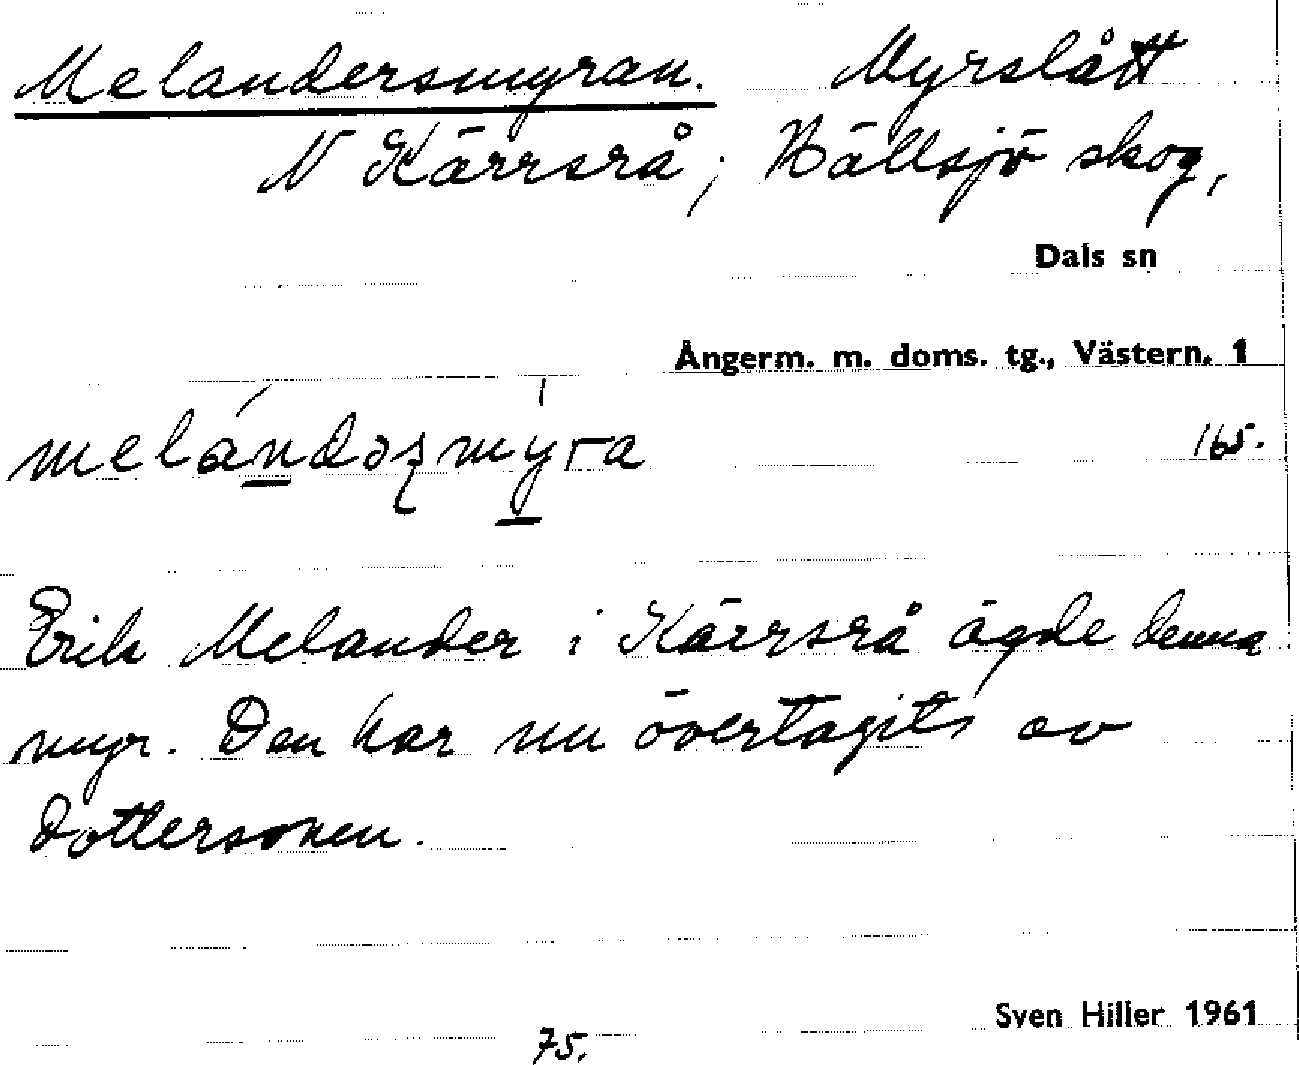 Melandersmyran. Myrslått
N Kärrsrå; Hällsjö skog,
Dals sn
Ångerm. m. doms. tg., Västern. 1
165.
Erik Melander i Kärrsrå ägde denna
myr. Den har nu övertagits av
dottersonen.
Sven Hiller 1961
75.